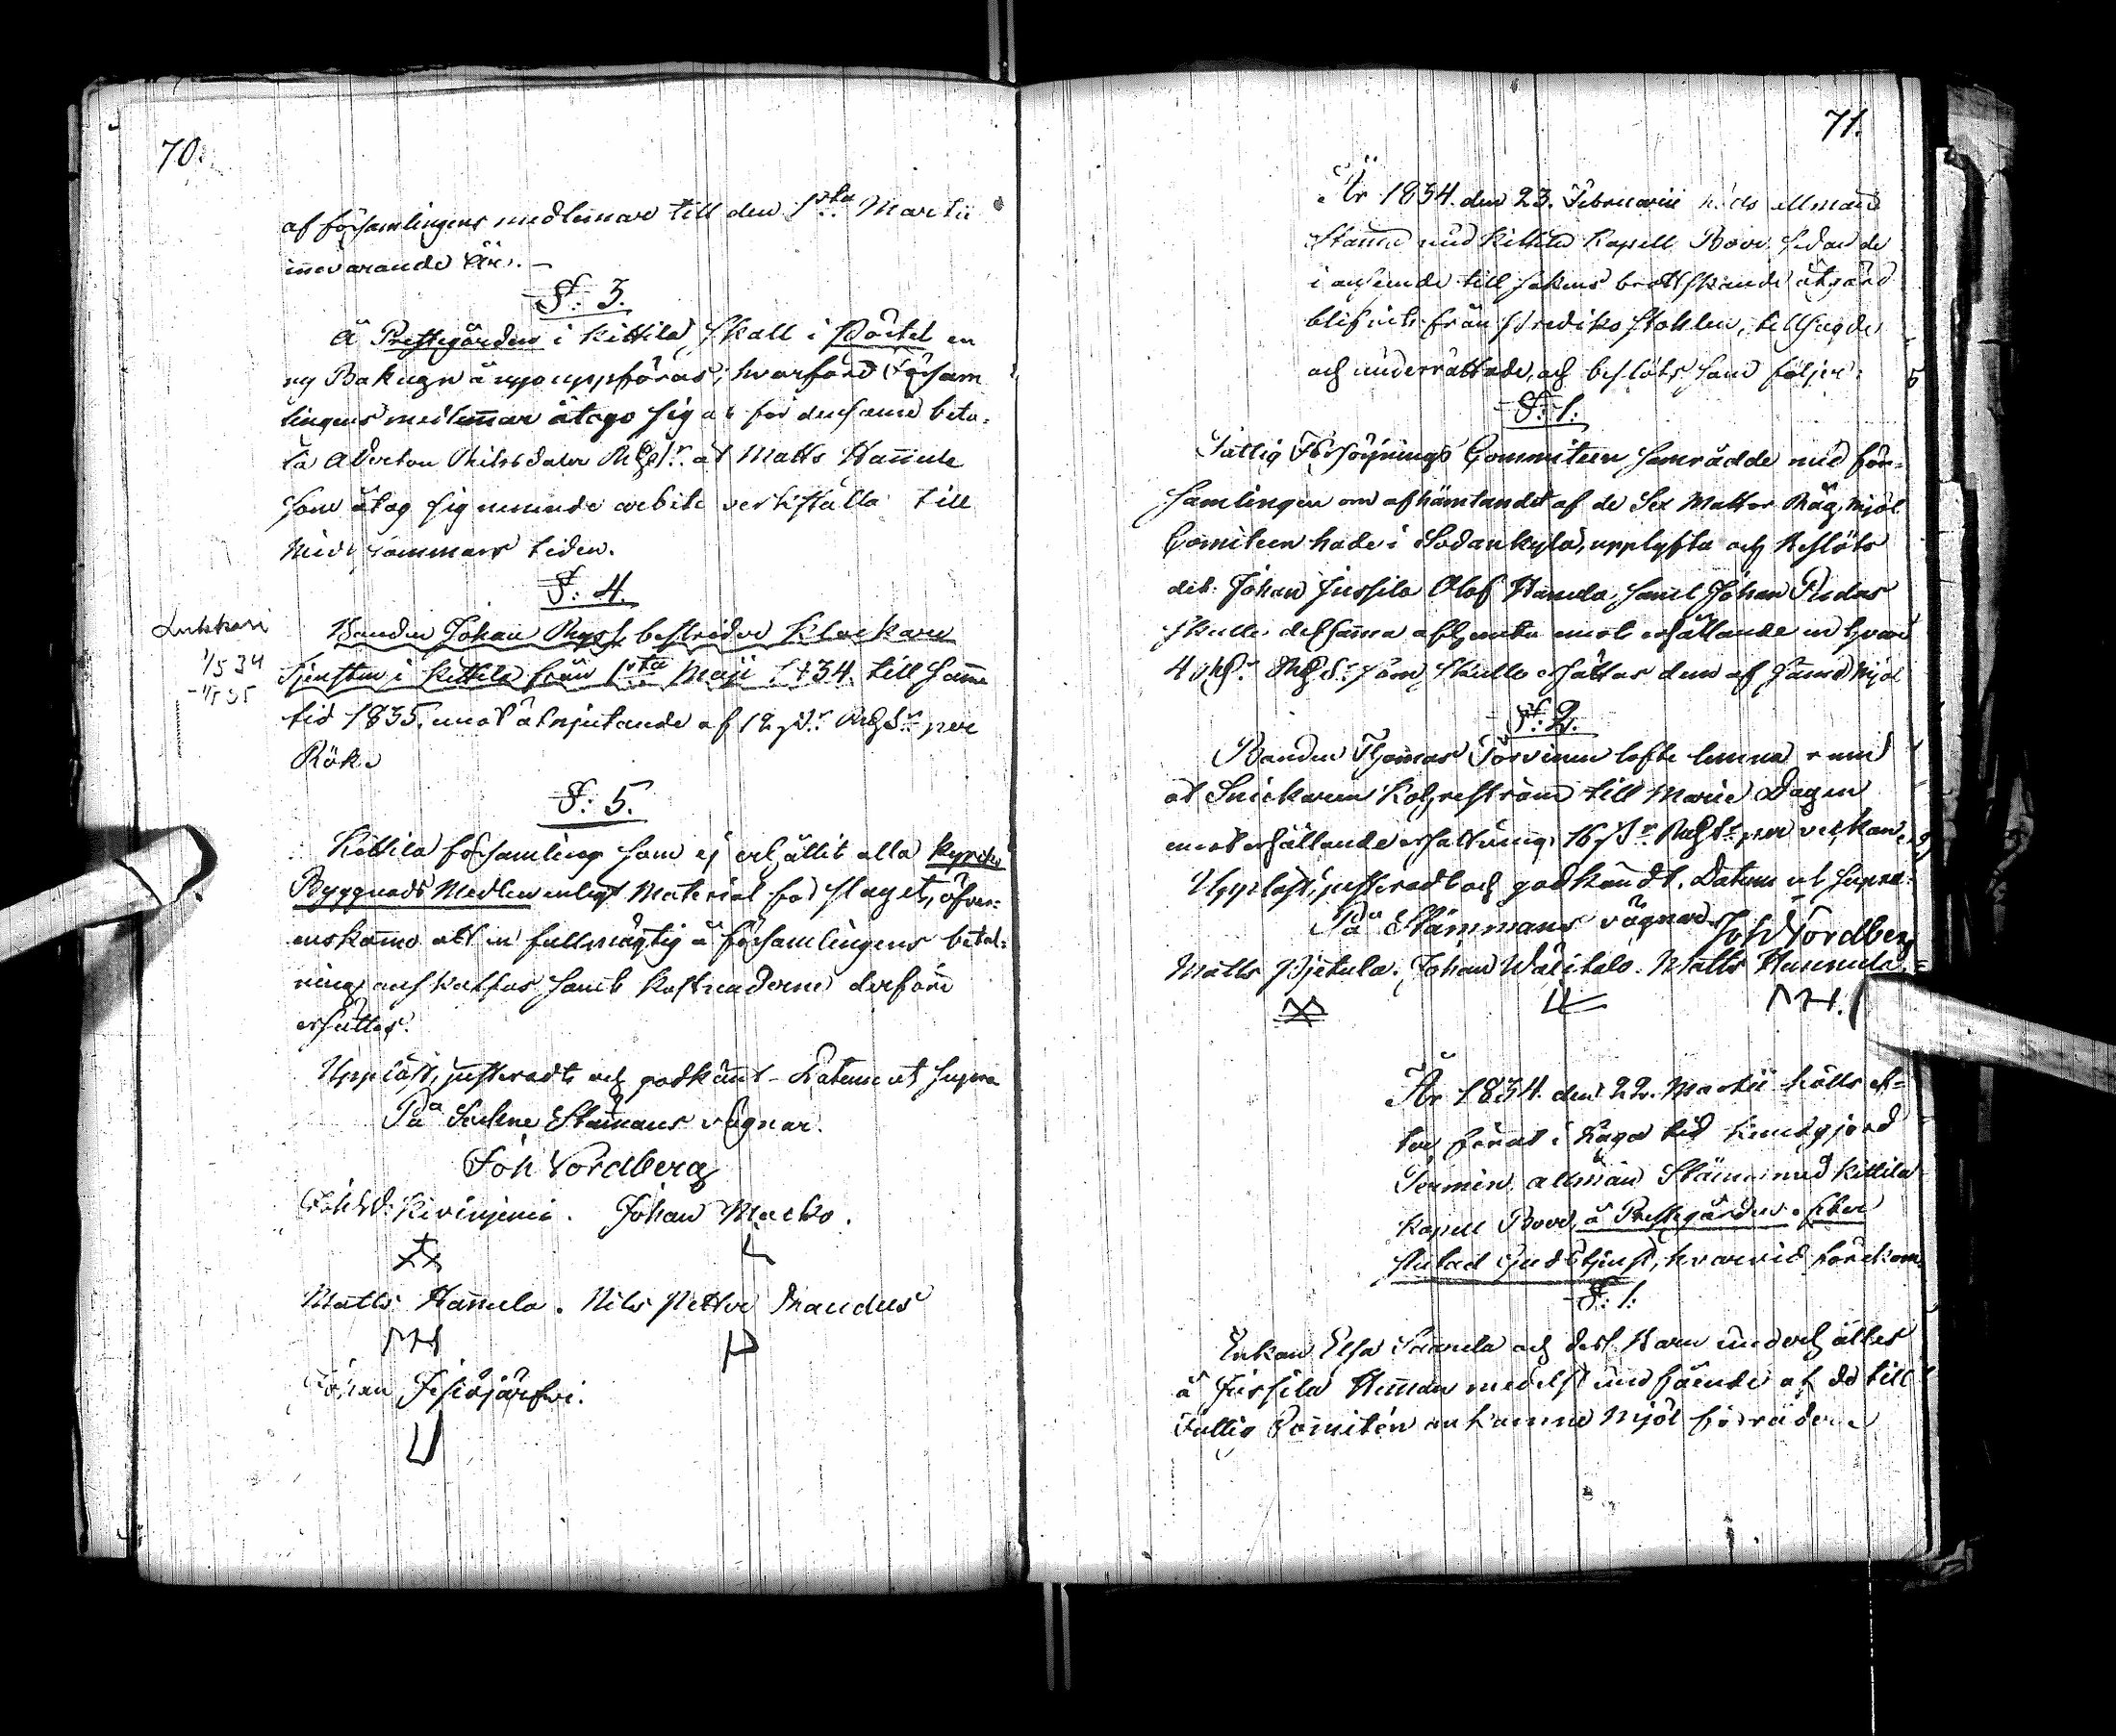 70.
af församlingens medlemmar till den 1sta Martii
innevarande År. -
§: 3.
Å Prestegården i Kittilä skall i Pörtet en
ny Bakugn ånyo uppföras; hvarföre Församlingens
medlemmar åtogo sig at för densamme beta-
la Aderton Riksdaler RGS:r åt Matts Hannula
som åtog sig nämnde arbete verkställa till
Midsommars tiden.
§: 4.
Lukkari
1/5 34
- 1/5 35
Bonden Johan Ryss bestrider Klockare
Tjensten i Kittilä från 1sta Maji 1834 till samme
tid 1835, emot åtnjutande af 12 RGS:r per
Rök.
§: 5.
Kittilä församling som ej erhållit alla Kyrko
Byggnads Medlen enligt Material förslaget, öfver-
enskommo att en fullmägtig å församlingens betal-
ning anskaffas samt kostnaderne derföre
ersättes.
Uppläst, justeradt och godkänt - Datum ut supra
På Sockne Stämmans vägnar.
Joh Nordberg
Kivinjemi. Johan Macko.
Matts Hannula. Nils Petter Mandus
MH P
Johan Jesiöjärfvi.
71.
År 1834 den 23. Februarii hölls allmän
Stämma med Kittilä Kapell Boer sedan de
i anseende till sakens brottskande åtgärd
blifvit från Prediko stohlen, tillsagde
och underrättade, och beslöts som följer:
§: 1.
Fattig Försörjnings Committeen samrådde med för-
samlingen om afhämtandet af de Sex Mattor Råg Mjöl
Comiteen hade i Sodankylä, upplysta och Beslöts
det Johan Jussila Olof Hannula samt Johan Rudas
skulle detsamma afhemta emot erhållande en hvar
4 RGS:r som skulle ersättas dem af samme Mjöl
§: 2.
Bonden Thomas Torvinen lofte lemna rum
åt Snickaren Holmström till Marie Dagen
emot erhållande ersättning 16 RGS:r per veckan.
Uppläst, justeradt och godkändt. Datum ut supra.
På Stämmans vägnar Joh Nordberg
Matts Pjetula. Johan Walitalo. Matts Hannula
MH.
År 1834 den 22. Martii hölls ef-
ter förut i laga tid kundgjord
Termin allmän Stämma med Kittilä
Kapell Boer, å Prestegården efter
slutad Gudstjenst, hvarvid förekom
§: 1.
Enkan Elsa Hannula och dess Barn underhålles
å Jussila Hemman medelst undfående af de till
Fattig Comitén ankomne Mjöl förråderne